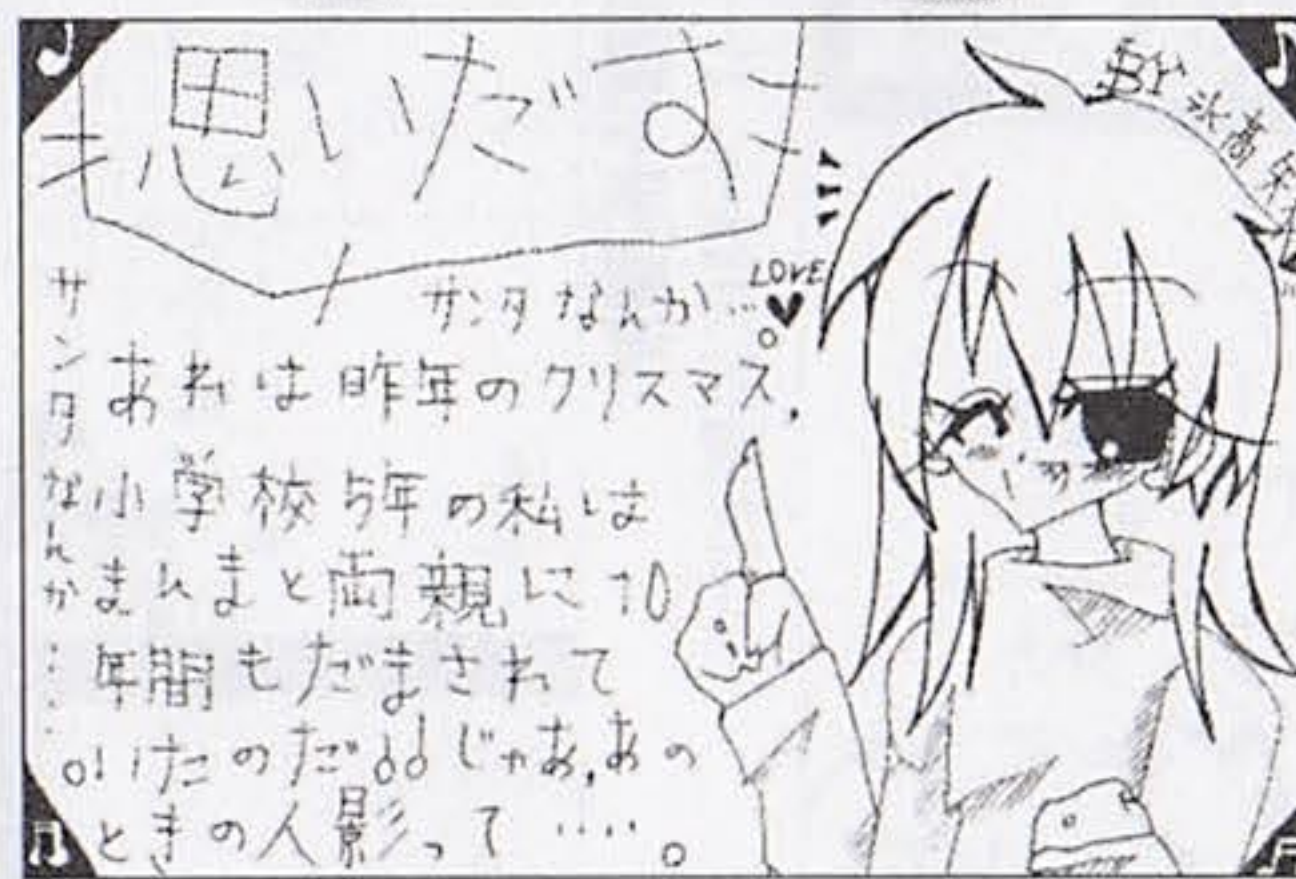 思いだすき
BY 氷高
サンタなんか…
LOVE
サンタなんか……
あれは昨年のクリスマス、
小学校5年の私は
まんまと両親に10
年間もだまされて
いたのだ!!じゃあ、あの
ときの人影って…‥。